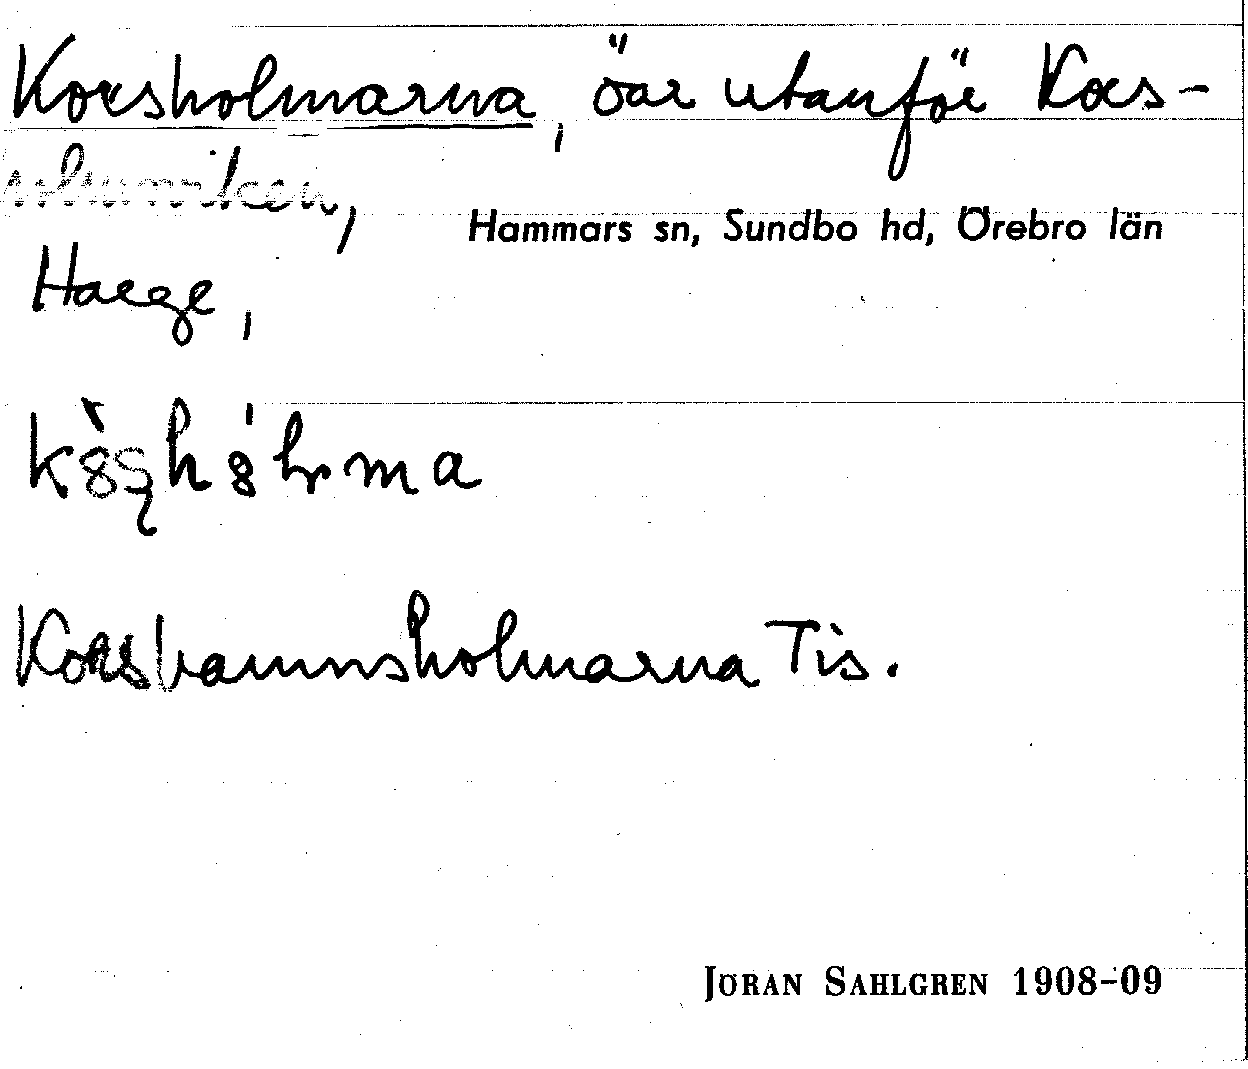 Korsholmarna, öar utanför Kors-
holmviken,
Hammars sn, Sundbo hd, Örebro län
Harge,
Korshamnsholmarna Tis.
JÖRAN SAHLGREN 1908-09